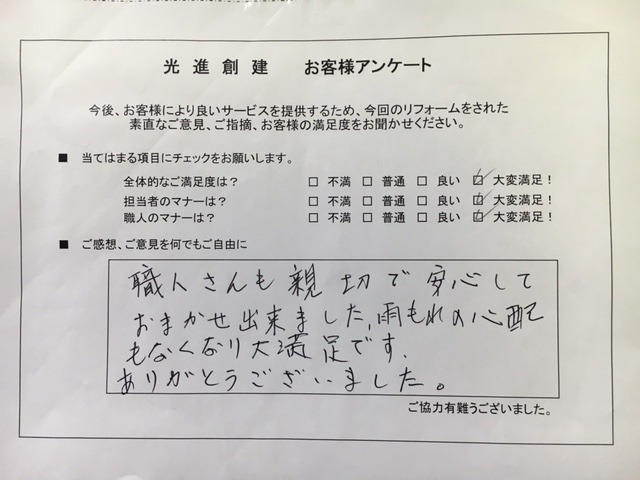 光進創建　お客様アンケート
今後、お客様により良いサービスを提供するため、今回のリフォームをされた
素直なご意見、ご指摘、お客様の満足度をお聞かせください。
■ 当てはまる項目にチェックをお願いします。
全体的なご満足度は？ □ 不満 □ 普通 □ 良い ☑ 大変満足！
担当者のマナーは？ □ 不満 □ 普通 □ 良い ☑ 大変満足！
職人のマナーは？ □ 不満 □ 普通 □ 良い ☑ 大変満足！
■ ご感想、ご意見を何でもご自由に
職人さんも親切で安心して
おまかせ出来ました、雨もれの心配
もなくなり大満足です.
ありがとうございました。
ご協力有難うございました。